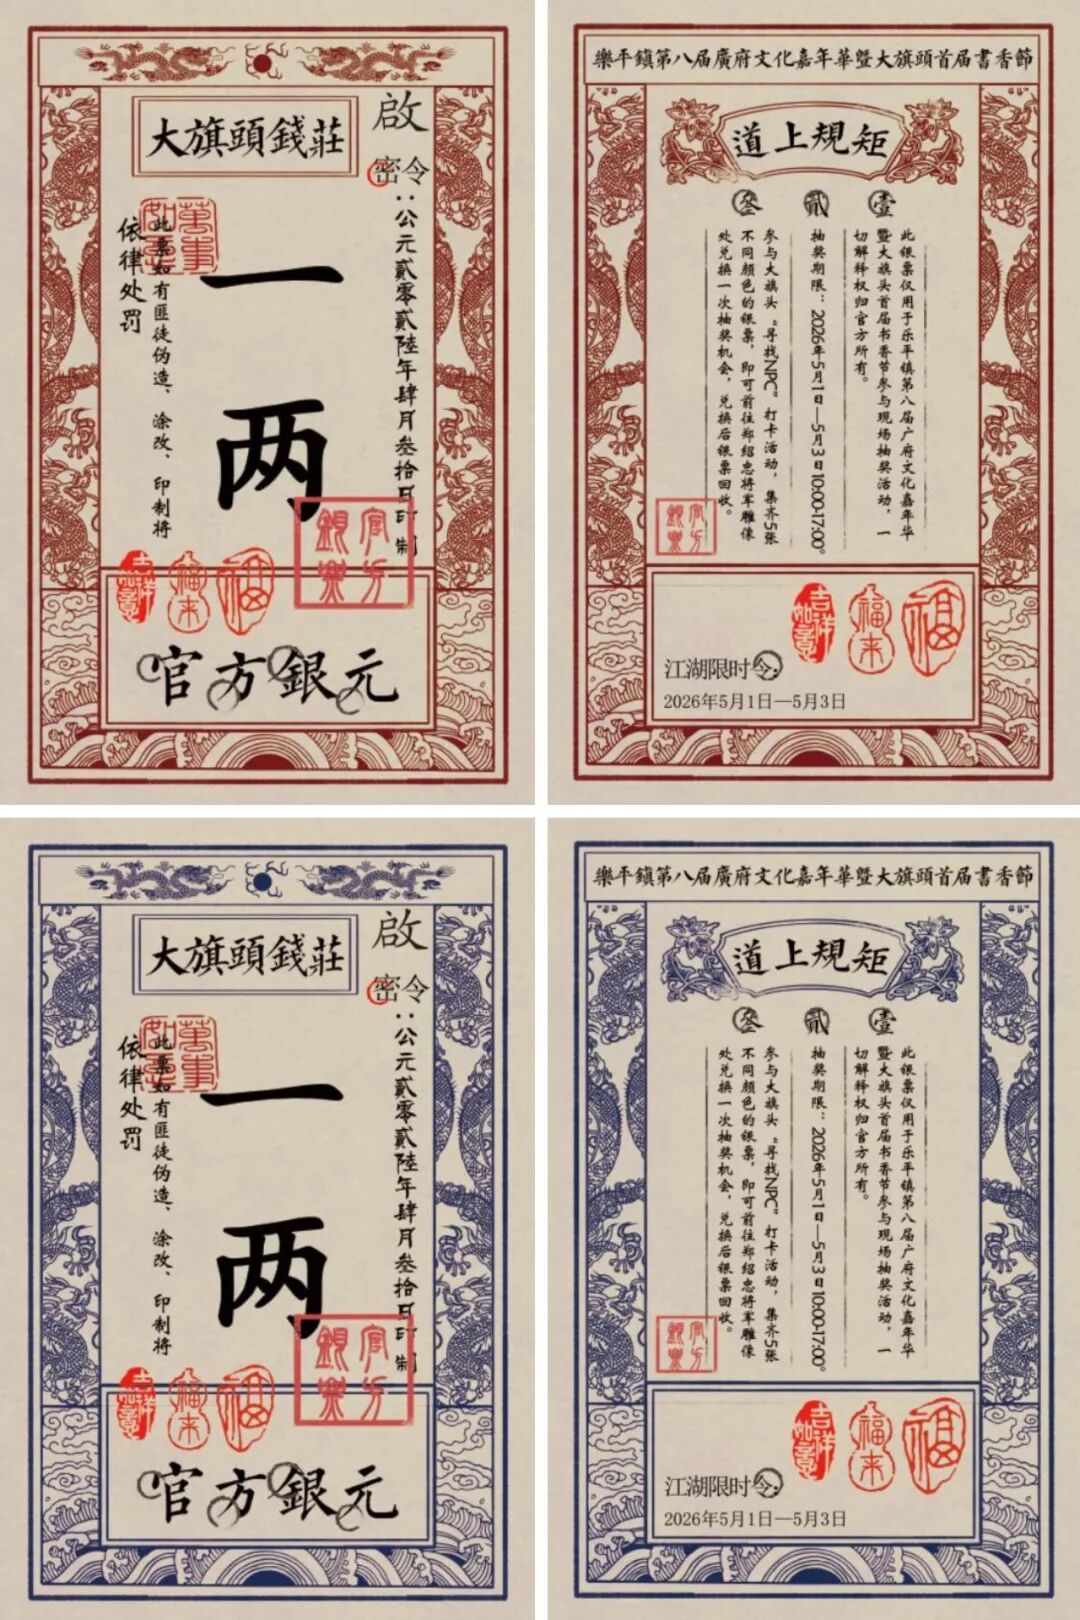 大旗頭錢莊
啟
密令：公元貳零貳陸年肆月叁拾日印制
萬事如意
一两
此票如有匪徒伪造、涂改、印制将
依律处罚
官方銀票
吉祥如意
福来
福
官方銀元
樂平鎮第八届廣府文化嘉年華暨大旗頭首届書香節
道上規矩
壹
此银票仅用于乐平镇第八届广府文化嘉年华
暨大旗头首届书香节参与现场抽奖活动，一
切解释权归官方所有。
贰
抽奖期限：2026年5月1日—5月3日10:00-17:00。
叁
参与大旗头“寻找NPC”打卡活动，集齐5张
不同颜色的银票，即可前往郑绍忠将军雕像
处兑换一次抽奖机会，兑换后银票回收。
官方銀票
吉祥如意
福来
福
江湖限时令：
2026年5月1日—5月3日
大旗頭錢莊
啟
密令：公元貳零貳陸年肆月叁拾日印制
萬事如意
一两
此票如有匪徒伪造、涂改、印制将
依律处罚
官方銀票
吉祥如意
福来
福
官方銀元
樂平鎮第八届廣府文化嘉年華暨大旗頭首届書香節
道上規矩
壹
此银票仅用于乐平镇第八届广府文化嘉年华
暨大旗头首届书香节参与现场抽奖活动，一
切解释权归官方所有。
贰
抽奖期限：2026年5月1日—5月3日10:00-17:00。
叁
参与大旗头“寻找NPC”打卡活动，集齐5张
不同颜色的银票，即可前往郑绍忠将军雕像
处兑换一次抽奖机会，兑换后银票回收。
官方銀票
吉祥如意
福来
福
江湖限时令：
2026年5月1日—5月3日